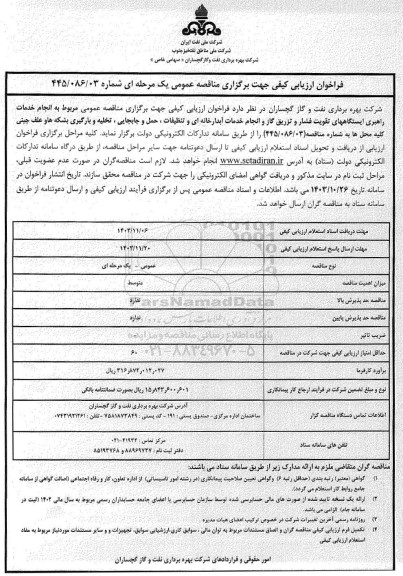 شرکت ملی نفت ایران
شرکت ملی مناطق نفتخیز جنوب
شرکت بهره برداری نفت وگاز گچساران « سهامی خاص »
فراخوان ارزیابی کیفی جهت برگزاری مناقصه عمومی یک مرحله ای شماره ۴۴۵/۰۸۶/۰۳
شرکت بهره برداری نفت و گاز گچساران در نظر دارد فراخوان ارزیابی کیفی جهت برگزاری مناقصه عمومی مربوط به انجام خدمات
راهبری ایستگاههای تقویت فشار و تزریق گاز و انجام خدمات آبدارخانه ای و تنظیفات ، حمل و جابجایی ، تخلیه و بارگیری بشکه هاو علف چینی
کلیه محل ها به شماره مناقصه(۴۴۵/۰۸۶/۰۳) را از طریق سامانه تدارکات الکترونیکی دولت برگزار نماید. کلیه مراحل برگزاری فراخوان
ارزیابی از دریافت و تحویل اسناد استعلام ارزیابی کیفی تا ارسال دعوتنامه جهت سایر مراحل مناقصه، از طریق درگاه سامانه تدارکات
الکترونیکی دولت (ستاد) به آدرس www.setadiran.ir انجام خواهد شد. لازم است مناقصه‌گران در صورت عدم عضویت قبلی،
مراحل ثبت نام در سایت مذکور و دریافت گواهی امضای الکترونیکی را جهت شرکت در مناقصه محقق سازند. تاریخ انتشار فراخوان در
سامانه تاریخ ۱۴۰۳/۱۰/۲۶ می باشد. اطلاعات و اسناد مناقصه عمومی پس از برگزاری فرآیند ارزیابی کیفی و ارسال دعوتنامه از طریق
سامانه ستاد به مناقصه گران ارسال خواهد شد.
مهلت دریافت اسناد استعلام ارزیابی کیفی ۱۴۰۳/۱۱/۰۶
مهلت ارسال پاسخ استعلام ارزیابی کیفی ۱۴۰۳/۱۱/۲۰
نوع مناقصه عمومی - یک مرحله ای
میزان اهمیت مناقصه متوسط
مناقصه حد پذیرش بالا ندارد
مناقصه حد پذیرش پایین ندارد
ضریب تاثیر
حداقل امتیاز ارزیابی کیفی جهت شرکت در مناقصه ۶۰
برآورد کارفرما ریال
نوع و مبلغ تضمین شرکت در فرآیند ارجاع کار پیمانکاری ریال بصورت ضمانتنامه بانکی
آدرس شرکت بهره برداری نفت و گاز گچساران
اطلاعات تماس دستگاه مناقصه گزار ساختمان اداره مرکزی - صندوق پستی : ۱۹۱ - کد پستی :
تلفن های سامانه ستاد مرکز تماس : ۴۱۹۳۴-۰۲۱
دفتر ثبت نام : ۸۸۹۶۹۷۳۷ و ۸۵۱۹۳۷۶۸
مناقصه گران متقاضی ملزم به ارائه مدارک زیر از طریق سامانه ستاد می باشند:
۱) گواهی (معتبر) رتبه بندی (حداقل رتبه ) وگواهی تعیین صلاحیت پیمانکاری (در رشته امور تاسیساتی) از اداره تعاون کار و رفاه اجتماعی
۲) ارائه یک نسخه تایید شده از صورت های مالی حسابرسی شده توسط سازمان حسابرسی یا اعضای جامعه حسابداران رسمی مربوط به سال مالی ۱۴۰۲
الزامی می باشد.
۳) روزنامه رسمی آخرین تغییرات شرکت در خصوص ترکیب اعضای هیات مدیره
۴) تکمیل فرم ارزیابی کیفی مناقصه گران و الصاق مستندات مربوط به توان مالی ، سوابق کاری،ارزشیابی سوابق، تجهیزات و و سایر مستندات موردنیاز مربوط به مفاد
استعلام ارزیابی کیفی
امور حقوقی و قراردادهای شرکت بهره برداری نفت و گاز گچساران
ParsNamadData
۰۲۱-۸۸۳۴۹۶۷۰-۵